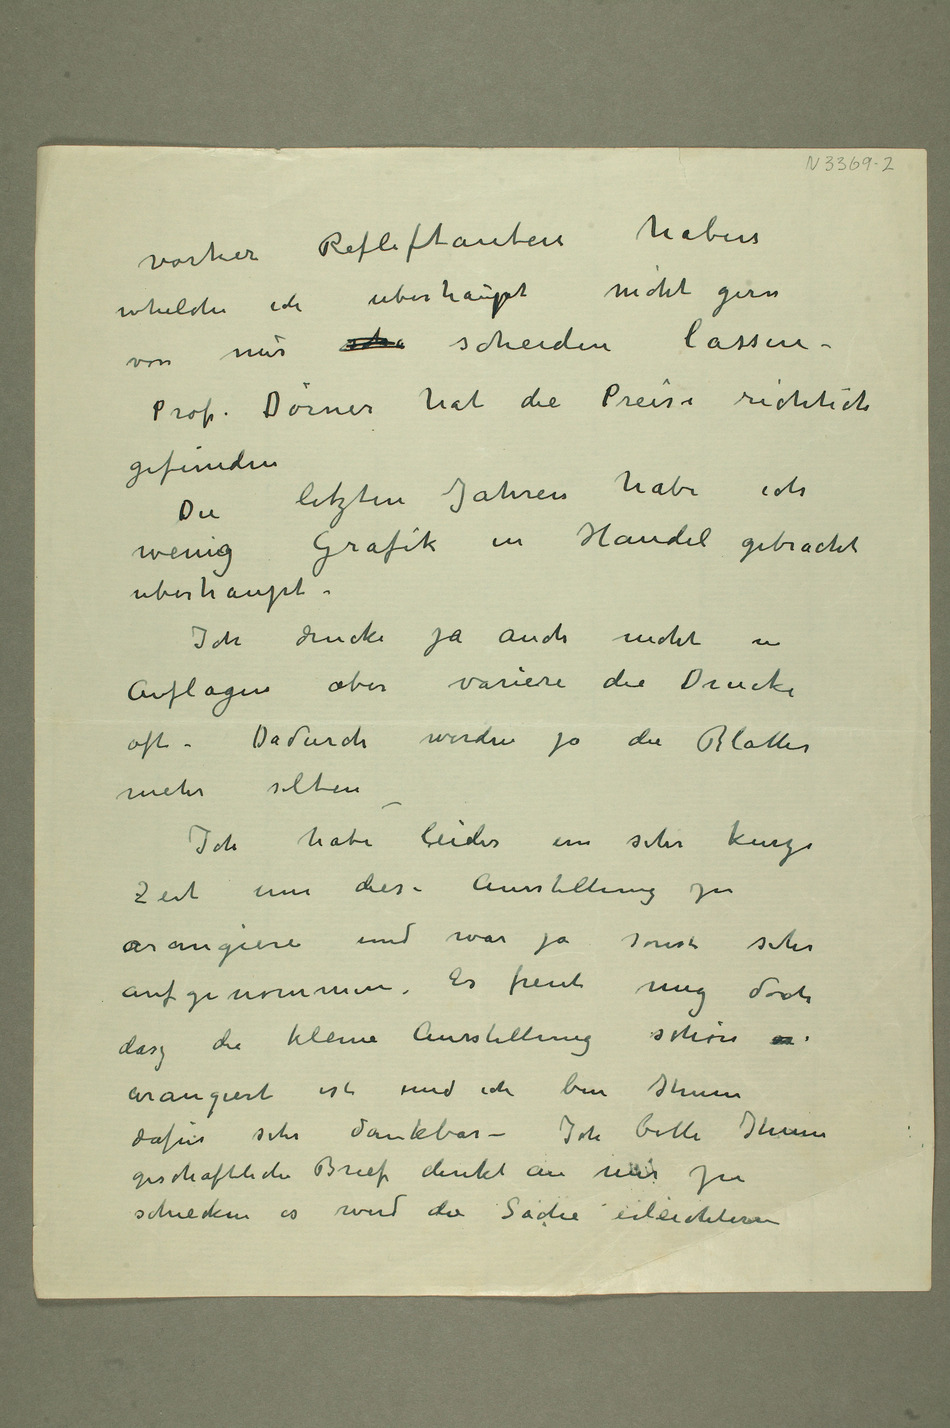 N 3369-2
vorher Refleftanten haben
whelche ich uberhaupt nicht gern
von mir scheiden lassen –
Prof. Dörner hat die Preise richtich
gefunden
Die letzten Jahren habe ich
wenig Grafik in Handel gebracht
uberhaupt –
Ich drucke ja auch nicht in
Auflagen aber variere die Drucke
oft – Dadurch werden ja die Blatter
mehr selten –
Ich habe leider ein sehr kurze
Zeit um diese Ausstellung zu
arangiere und war ja sonst sehr
aufgenommen. Es freut mig doch
dasz die kleine Ausstellung schön
arangiert ist und ich bin Ihnen
dafür sehr dankbar – Ich bitte Ihnen
geschaftliche Brief direkt an mir zu
schicken es wird die Sache erleichtern